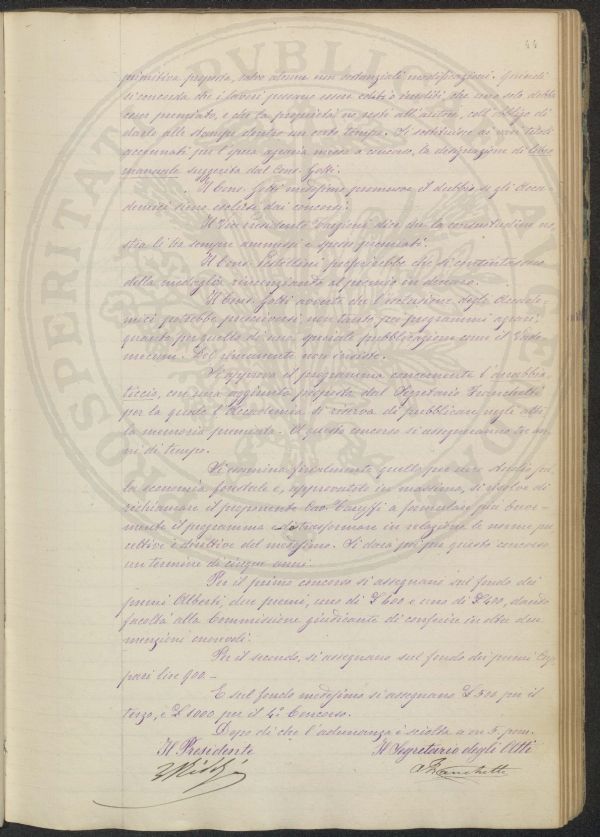 44
primitiva proposta, salvo alcune non sostanziali modificazioni. Quindi
si concorda che i lavori possano essere editi o inediti, che uno solo debba
esser premiato, e che la proprietà ne resti all'autore, coll'obbligo di
darlo alle stampe dentro un certo tempo. Si sostituisce ai vari titoli
accennati per l'opera agraria messa a concorso, la designazione di libro
manuale suggerita dal Cons. Gotti.
Il Cons. Gotti medesimo promuove il dubbio se gli Acca-
demici siano esclusi dai concorsi.
Il Vice presidente dice che la consuetudine no-
stra li ha sempre ammessi e spesso premiati.
Il Cons. preferirebbe che si contentassero
della medaglia rinunziando al premio in denaro.
Il Cons. Gotti avverte che l'esclusione degli Accade-
mici potrebbe pronunciarsi non tanto pei programmi agrari
quanto per quello di una speciale pubblicazione come il Vade
mecum. Del rimanente non insiste.
Si approva il programma concernente l'arrabbia-
ticcio, con una aggiunta proposta dal Segretario Franchetti
per la quale l'Accademia si riserva di pubblicare negli atti
la memoria premiata. A questo concorso si assegneranno tre an-
ni di tempo.
Si esamina finalmente quello per uno studio su
la economia forestale e, approvatolo in massima, si risolve di
richiamare il proponente Cav. a formulare più breve-
mente il programma trasformare in relazione le norme pre-
cettive e direttive del medesimo. Si darà poi per questo concorso
un termine di cinque anni.
Per il primo concorso si assegnano sul fondo dei
premi Alberti, due premi, uno di £ 600 e uno di £ 400, dando
facoltà alla Commissione giudicante di conferire in oltre due
menzioni onorevoli.
Per il secondo, si assegnano sul fondo dei premi Cop-
pari lire 900. -
E sul fondo medesimo si assegnano £ 500 per il
terzo, e £ 1000 per il 4° Concorso.
Dopo di che l'adunanza è sciolta a ore 5 pom.
Il Presidente
Il Segretario degli Atti
Ridolfi
Franchetti
PROSPERITATI PVBLICAE AVGENDAE